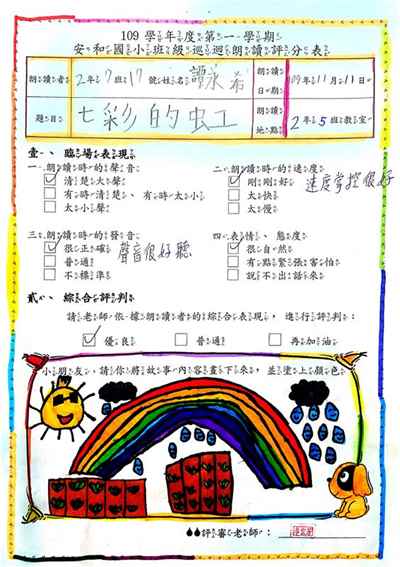 109學年度第一學期
安和國小班級巡迴朗讀評分表
朗讀者 2年7班17號姓名 讀永希 朗讀日期 109年11月11日
題目 七彩的虹 朗讀地點 2年5班教室
壹、臨場表現
一、朗讀時的聲音 二、朗讀時的速度
清楚大聲 剛剛好 速度掌控很好
有時清楚、有時太小 太快
太小聲 太慢
三、朗讀時的發音 四、表情、態度
很正確 聲音很好聽 很自然
普通 有點緊張害怕
不標準 說不出話來
貳、綜合評判
請老師依據朗讀者的綜合表現,進行評判:
優良 普通 再加油
小朋友,請你將故事內容畫下來,並塗上顏色
評審老師: